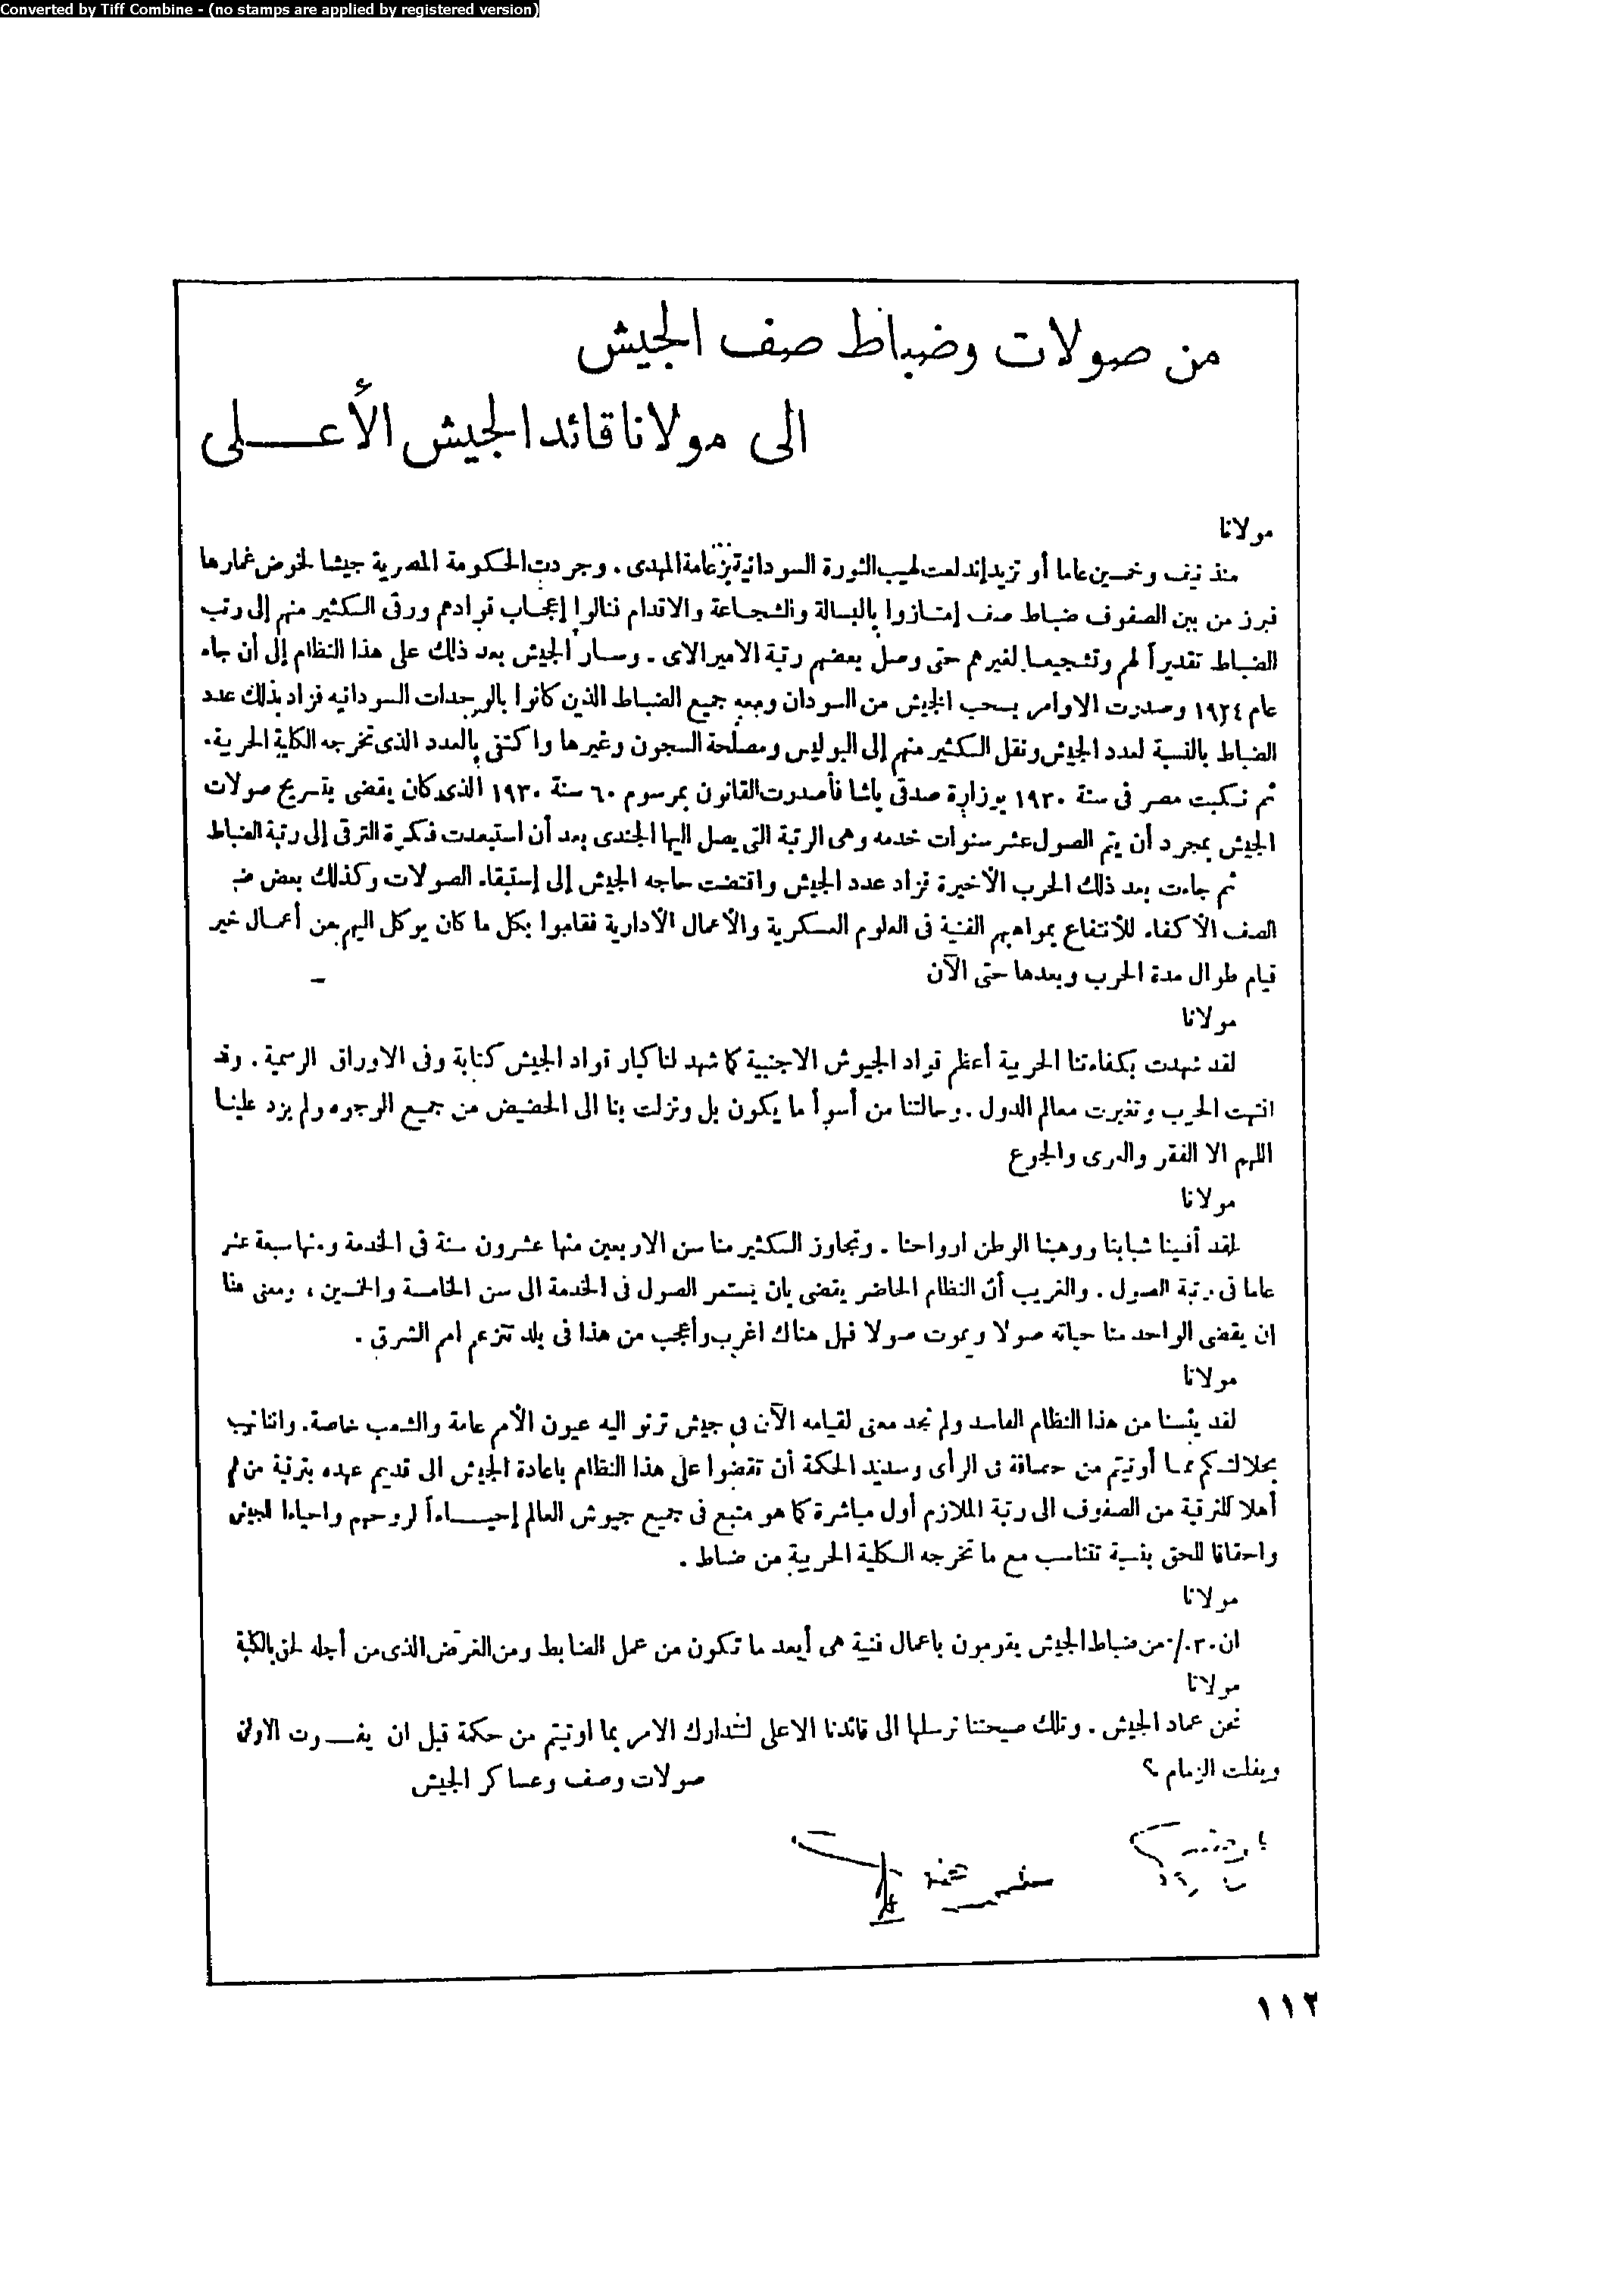 Converted by Tiff Combine - (no stamps are applied by registered version)
من صولات وضباط صف الجيش
الى مولانا قائد الجيش الأعلى
مولانا
منذ نيف وخمسين عاما أو تزيد إندلعت لهيب الثورة السودانية بزعامة المهدى . وجردت الحكومة المصرية جيشا لخوض غمارها
فبرز من بين الصفوف ضباط صف إمتازوا بالبسالة والشجاعة والاقدام فنالوا إعجاب قوادهم ورقى الكثير منهم إلى رتب
الضباط تقديراً لهم وتشجيعا لغيرهم حتى وصل بعضهم رتبة الاميرالاى . وسار الجيش بعد ذلك على هذا النظام إلى أن جاء
عام ١٩٢٤ وصدرت الاوامر بسحب الجيش من السودان ومعه جميع الضباط الذين كانوا بالوحدات السودانيه فزاد بذلك عدد
الضباط بالنسبة لعدد الجيش ونقل الكثير منهم إلى البوليس ومصلحة السجون وغيرها واكتفى بالعدد الذى تخرجه الكلية الحربية.
ثم نكبت مصر فى سنة ١٩٣٠ بوزارة صدقى باشا فأصدرت القانون بمرسوم ٦٠ سنة ١٩٣٠ الذى كان يقضى بتسريح صولات
الجيش بمجرد أن يتم الصول عشر سنوات خدمه وهى الرتبة التى يصل اليها الجندى بعد أن استبعدت فكرة الترقى إلى رتبة الضباط
ثم جاءت بعد ذلك الحرب الأخيرة فزاد عدد الجيش واقتضت حاجه الجيش إلى إستبقاء الصولات وكذلك بعض ضب
الصف الأكفاء للأنتفاع بمواهبهم الفنية فى العلوم العسكرية والأعمال الأدارية فقاموا بكل ما كان يوكل اليهم من أعمال خير
قيام طوال مدة الحرب وبعدها حتى الآن
مولانا
لقد شهدت بكفاءتنا الحربية أعظم قواد الجيوش الاجنبية كما شهد لنا كبار قواد الجيش كتابة وفى الاوراق الرسمية . وقد
انتهت الحرب وتغيرت معالم الدول . وحالتنا من أسوأ ما يكون بل ونزلت بنا الى الحضيض من جميع الوجوه ولم يزد علينا
اللهم الا الفقر والعرى والجوع
مولانا
لقد أفنينا شبابنا ووهبنا الوطن ارواحنا . وتجاوز الكثير منا سن الاربعين منها عشرون سنة فى الخدمة ومنها سبعة عشر
عاما فى رتبة الصول . والغريب أن النظام الحاضر يقضى بان يستمر الصول فى الخدمة الى سن الخامسة والخمسين ، ومعنى هذا
ان يقضى الواحد منا حياته صولا ويموت صولا فهل هناك اغرب وأعجب من هذا فى بلد تتزعم امم الشرق .
مولانا
لقد يئسنا من هذا النظام الفاسد ولم نجد معنى لقيامه الآن فى جيش ترنو اليه عيون الأمم عامة والشعب خاصة. واننا نهيب
بجلالتكم بما أوتيتم من حصافة فى الرأى وسديد الحكمة أن تقضوا على هذا النظام باعادة الجيش الى قديم عهده بترقية من هم
أهلا للترقية من الصفوف الى رتبة الملازم أول مباشرة كما هو متبع فى جميع جيوش العالم إحياءاً لروحهم واحياءا للجيش
واحقاقا للحق بنسبة تتناسب مع ما تخرجه الكلية الحربية من ضباط .
مولانا
ان ٣٠٪ من ضباط الجيش يقومون باعمال فنية هى أبعد ما تكون من عمل الضابط ومن الغرض الذى من أجله لحق بالكلية
مولانا
نحن عماد الجيش . وتلك صيحتنا نرسلها الى قائدنا الاعلى لتدارك الامر بما اوتيتم من حكمة قبل ان يفوت الاوان
ويفلت الزمام ؟
صولات وصف وعساكر الجيش
١١٢